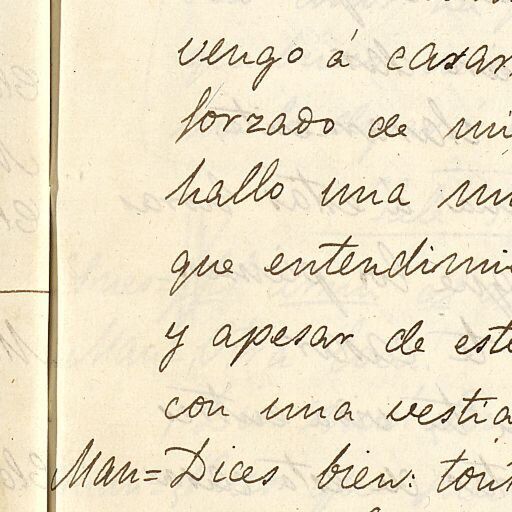 vengo á casar
forzado de mi
hallo una mu
que entendimi
y apesar de este
con una vestia
Man= Dices bien: tont